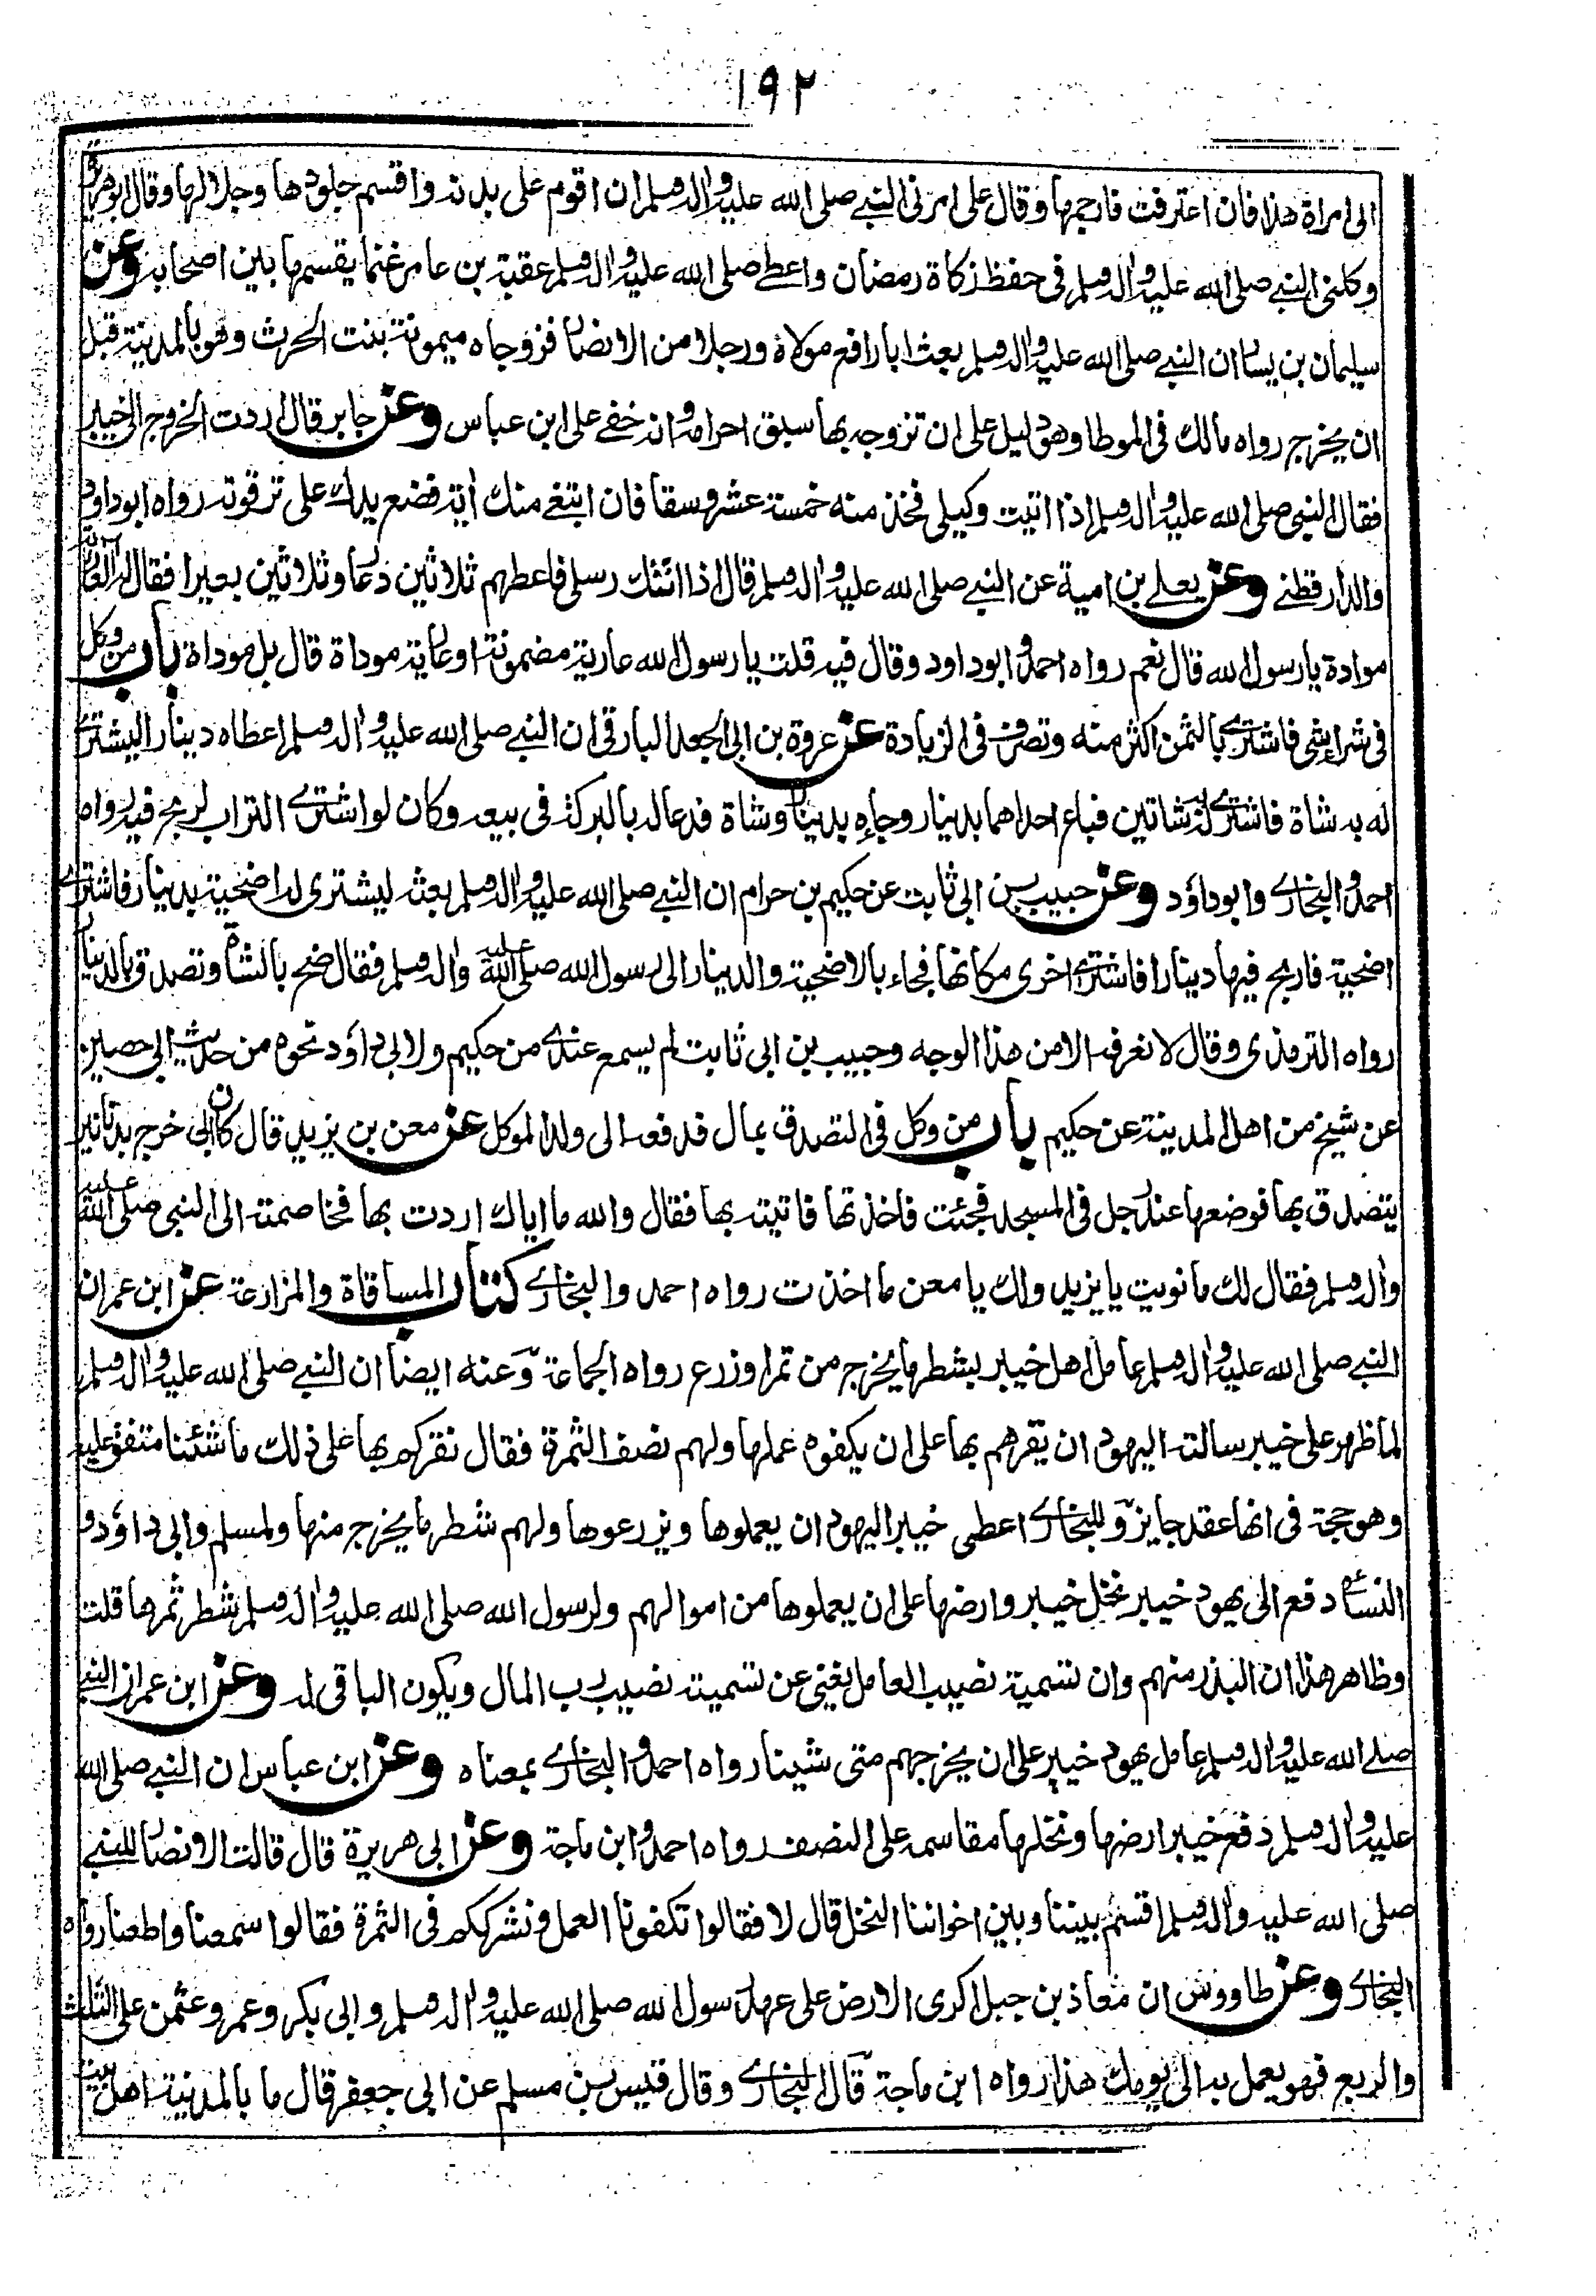 ١٩٢
الى امراة هذا فان اعترفت فارجمها وقال على امرنى النبي صلى الله عليه واله وسلم ان اقوم على بدنه واقسم جلودها وجلالها وقال ابو هريرة
وكلنى النبي صلى الله عليه واله وسلم فى حفظ زكاة رمضان واعطى صلى الله عليه واله وسلم عقبة بن عامر غنما يقسمها بين اصحابه وعن
سليمان بن يسار ان النبي صلى الله عليه واله وسلم بعث ابا رافع مولاه ورجلا من الانصار فزوجاه ميمونة بنت الحرث وهو بالمدينة قبل
ان يخرج رواه مالك فى الموطا وهو دليل على ان تزوجه بها سبق احرامه وانه خفى على ابن عباس وعن جابر قال اردت الخروج الى خيبر
فقال النبى صلى الله عليه واله وسلم اذا اتيت وكيلى فخذ منه خمسة عشر وسقا فان ابتغى منك اية فضع يدك على ترقوته رواه ابو داود
والدارقطنى وعن يعلى بن امية عن النبي صلى الله عليه واله وسلم قال اذا اتتك رسلى فاعطهم ثلاثين درعا وثلاثين بعيرا فقال له العارية
موداة يا رسول الله قال نعم رواه احمد وابو داود وقال فيه قلت يا رسول الله عارية مضمونة او عارية موداة قال بل موداة باب من وكل
فى شراء شى فاشترى بالثمن اكثر منه وتصرف فى الزيادة عن عروة بن ابى الجعد البارقى ان النبي صلى الله عليه واله وسلم اعطاه دينارا ليشترى
له به شاة فاشترى له شاتين فباع احداهما بدينار وجاءه بدينار وشاة فدعا له بالبركة فى بيعه وكان لو اشترى التراب لربح فيه رواه
احمد والبخارى وابو داؤد وعن حبيب بن ابى ثابت عن حكيم بن حزام ان النبي صلى الله عليه واله وسلم بعثه ليشترى له اضحية بدينار فاشترى
اضحية فاربح فيها دينارا فاشترى اخرى مكانها فجاء بالاضحية والدينار الى رسول الله صلى الله عليه واله وسلم فقال ضح بالشاة وتصدق بالدينار
رواه الترمذى وقال لا نعرفه الا من هذا الوجه وحبيب بن ابى ثابت لم يسمع عندى من حكيم ولابى داؤد نحوه من حديث ابى حصين
عن شيخ من اهل المدينة عن حكيم باب من وكل فى التصدق بمال فدفعه الى ولد الموكل عن معن بن يزيد قال كان ابى خرج بدنانير
يتصدق بها فوضعها عند رجل فى المسجد فجئت فاخذتها فاتيته بها فقال والله ما اياك اردت بها فخاصمته الى النبى صلى الله عليه
واله وسلم فقال لك ما نويت يا يزيد ولك يا معن ما اخذت رواه احمد والبخارى كتاب المساقاة والمزارعة عن ابن عمر ان
النبي صلى الله عليه واله وسلم عامل اهل خيبر بشطر ما يخرج من ثمر او زرع رواه الجماعة وعنه ايضا ان النبي صلى الله عليه واله وسلم
لما ظهر على خيبر سالته اليهود ان يقرهم بها على ان يكفوه عملها ولهم نصف الثمرة فقال نقركم بها على ذلك ما شئنا متفق عليه
وهو حجة فى انها عقد جايز وللبخارى اعطى خيبر اليهود ان يعملوها ويزرعوها ولهم شطر ما يخرج منها ولمسلم وابى داؤد و
النسائى دفع الى يهود خيبر نخل خيبر وارضها على ان يعملوها من اموالهم ولرسول الله صلى الله عليه واله وسلم شطر ثمرها قلت
وظاهر هذا ان البذر منهم وان تسمية نصيب العامل تغنى عن تسمية نصيب رب المال ويكون الباقى له وعن ابن عمر ان النبي
صلى الله عليه واله وسلم عامل يهود خيبر على ان يخرجهم متى شينا رواه احمد والبخارى بمعناه وعن ابن عباس ان النبي صلى الله
عليه واله وسلم دفع خيبر ارضها ونخلها مقاسمة على النصف رواه احمد وابن ماجة وعن ابى هريرة قال قالت الانصار للنبي
صلى الله عليه واله وسلم اقسم بيننا وبين اخواننا النخل قال لا فقالوا تكفونا العمل ونشرككم فى الثمرة فقالوا سمعنا واطعنا رواه
البخارى وعن طاووس ان معاذ بن جبل اكرى الارض على عهد رسول الله صلى الله عليه واله وسلم وابى بكر وعمر وعثمن على الثلث
والربع فهو يعمل به الى يومك هذا رواه ابن ماجة قال البخارى وقال قيس بن مسلم عن ابى جعفر قال ما بالمدينة اهل بيت